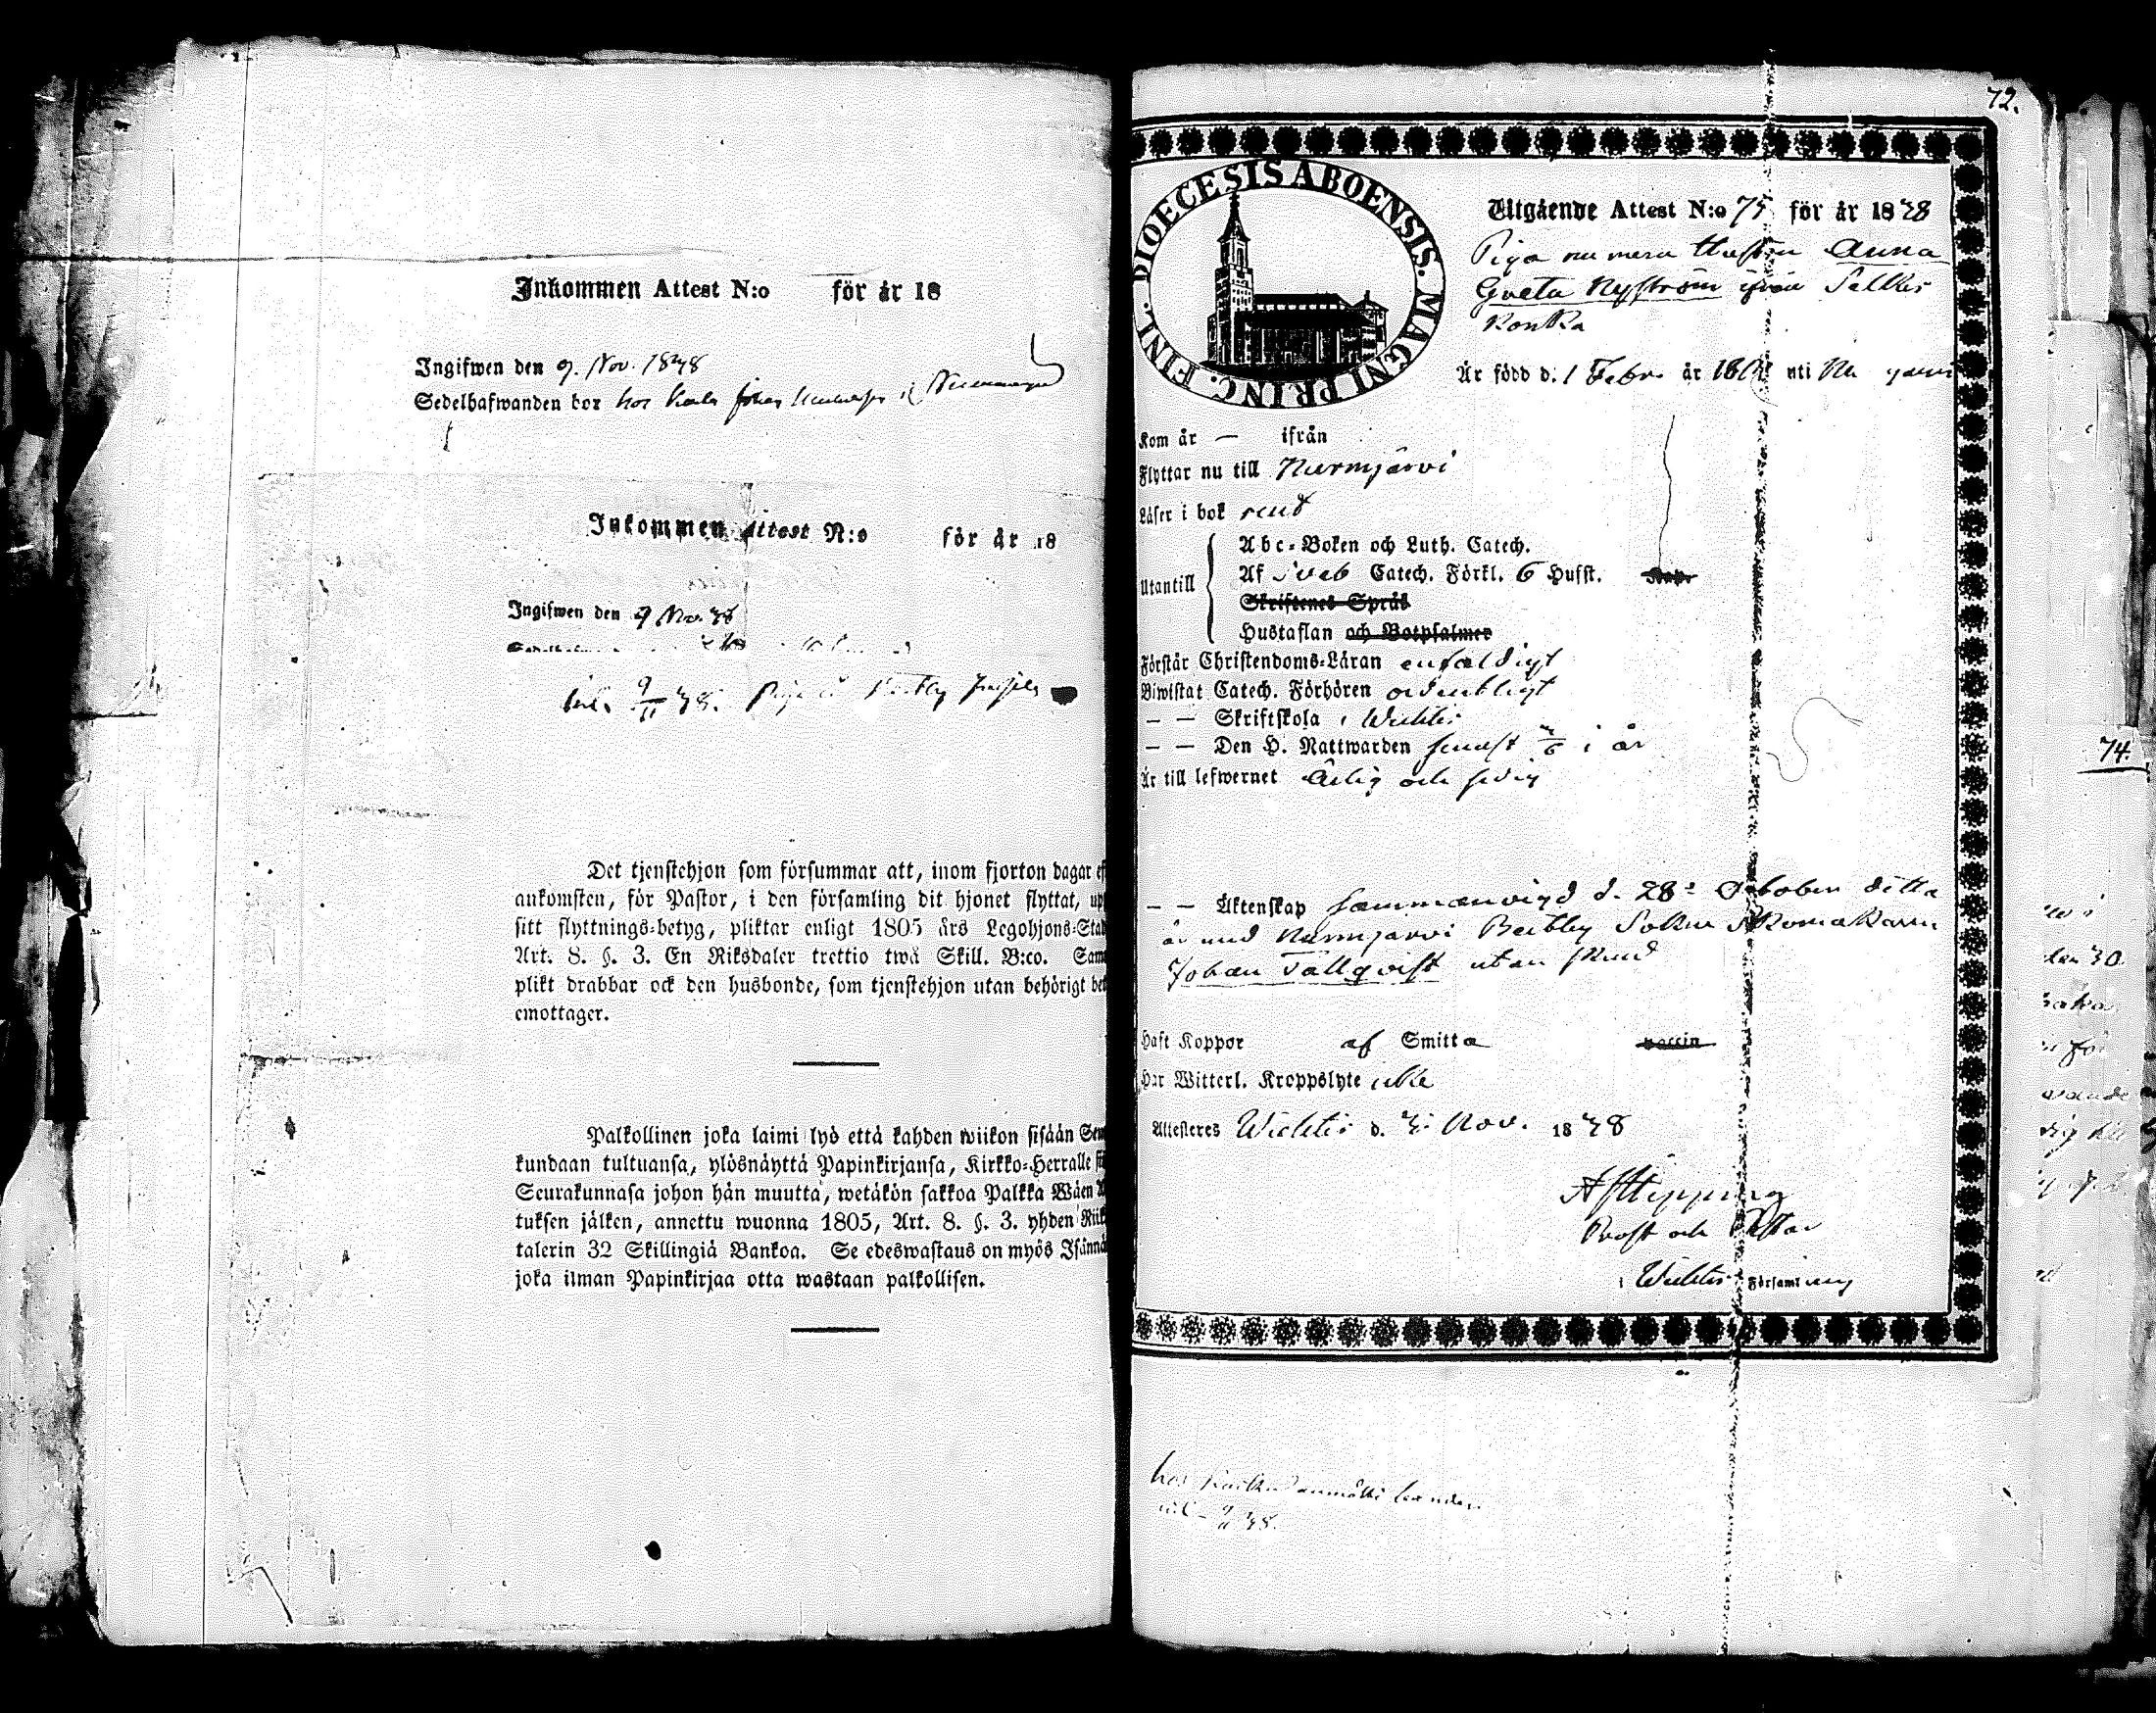 Inkommen Attest N:o för år 18
Ingifwen den 9. Nov. 1848
Sedelhafwanden bor hos Johan
Inkommen Attest N:o för år 18
Ingifwen den 9 Nov. 48
9/11 48.
Det tjenstehjon som försummar att, inom fjorton dagar ef
ankomsten, för Pastor, i den församling dit hjonet flyttat, up
sitt flyttnings-betyg, pliktar enligt 1805 års Legohjons-Stad
Art. 8. §. 3. En Riksdaler trettio twå Skill. B:co. Sam
plikt drabbar ock den husbonde, som tjenstehjon utan behörigt bet
emottager.
Palkollinen joka laimi lyö että kahden wiikon sisään Seu
kundaan tultuansa, ylösnäyttä Papinkirjansa, Kirkko-Herralle si
Seurakunnasa johon hän muuttä, wetäkön sakkoa Palkka Wäen A
tuksen jälken, annettu wuonna 1805, Art. 8. §. 3. yhden Riik
talerin 32 Skillingiä Bankoa. Se edeswastaus on myös Isännä
joka ilman Papinkirjaa otta wastaan palkollisen.
72.
FINL. DIOECESIS ABOENSIS. MAGNI PRINC.
Utgående Attest N:o 75 för år 1848
Piga nu mera Hustru Anna
Greta Nyström ifrån Salkis
Kontka
Är född d. 1 Febr. år 18 uti
Kom år — ifrån
Flyttar nu till Nurmjärvi
Läser i bok rent
Utantill
Abc-Boken och Luth. Catech.
Af Sveb Catech. Förkl. 6 Hufst.
Skriftenes Språk
Hustaflan och Botpsalmer
Förstår Christendoms-Läran enfaldigt
Biwistat Catech. Förhören ordentligt
— — Skriftskola i Wichtis
— — Den H. Nattwarden senast i år
Är till lefwernet Ärlig och sedig
— — Äktenskap sammanvigd d. 28: October detta
år med Nurmjärvi Perttby Sokne Skomakaren
Johan Tallqvist utan
Haft Koppor af Smitta vaccin
Har Witterl. Kroppslyte icke
Attesteres Wichtis d. Nov. 1848
A J Hipping
Prost och Pastor
i Wichtis Församling
hos
9/11 48.
74.
den 30